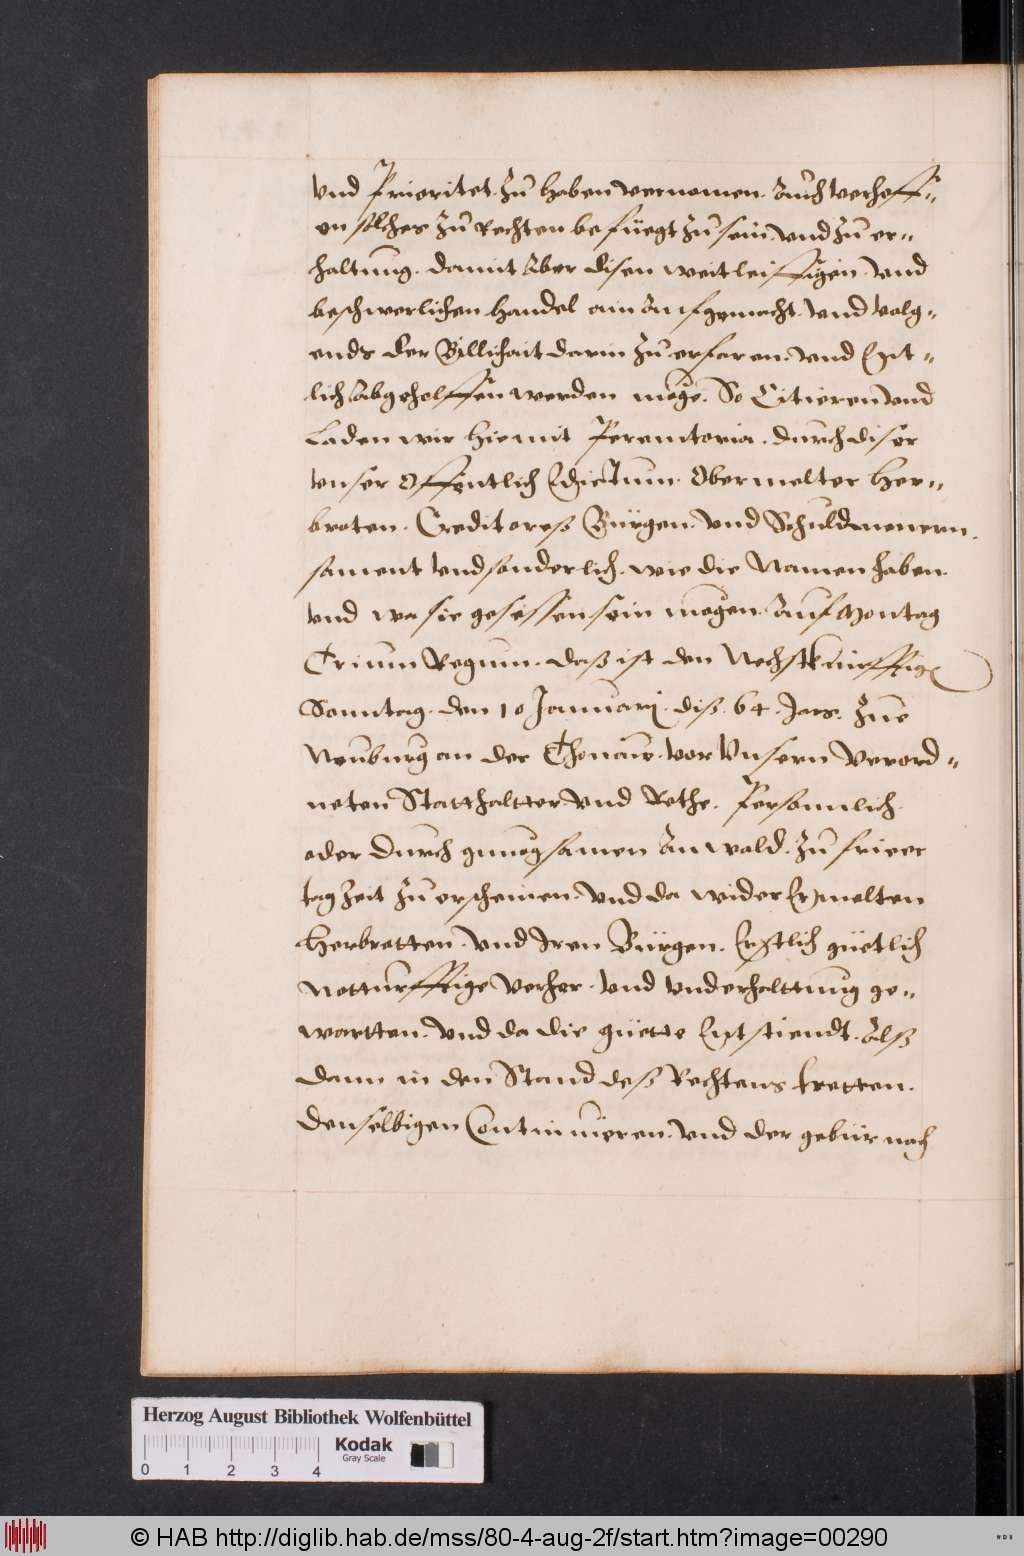 vnd Prioritet. zu haben vernomen. Auch verhoff„
en solches zu Rechten befüegt zu sein, vnd zu er„
haltung. damit Aber disen weitleiffigen. vnd
beschwerlichen handel ain Aufgemacht. vnd volg„
ends der Billichait darin zu erfaren. vnd Ent„
lich Abgeholffen werden möge. So Citieren vnd
Laden wir hiemit Peremtoria. durch diser
vnser Offentlich Edictum. Obermelter Her„
broten. Creditoreß Bürgen. vnd Schuldmenern.
sament vnd sonderlich. wie die Namen haben.
vnd wa sie gesessen sein mögen. Auf Montag
Trium Regum. daß ist den Nechstkünfftigen
Sonntag. den 10 Januarj. diß. 64. Jars. Zue
Neuburg an der Thonaw. vor Vnsern Verord„
neten Statthaltter vnd Rethe. Persönnlich.
oder Durch gnuogsamen Anwald. zu frieer
tag Zeit zu erscheinen. vnd da wider Ermelten
Herbrotten. vnd Iren Bürgen. Erstlich güetlich
Notturfftige Verher. vnd vnderhalttung ge„
wartten. vnd da die güette Entstiendt. Alß
dann in den Stand deß Rechtens tretten.
denselbigen Continuieren. vnd der gebür nach
Herzog August Bibliothek Wolfenbüttel
Kodak
Gray Scale
0 1 2 3 4
© HAB http://diglib.hab.de/mss/80-4-aug-2f/start.htm?image=00290